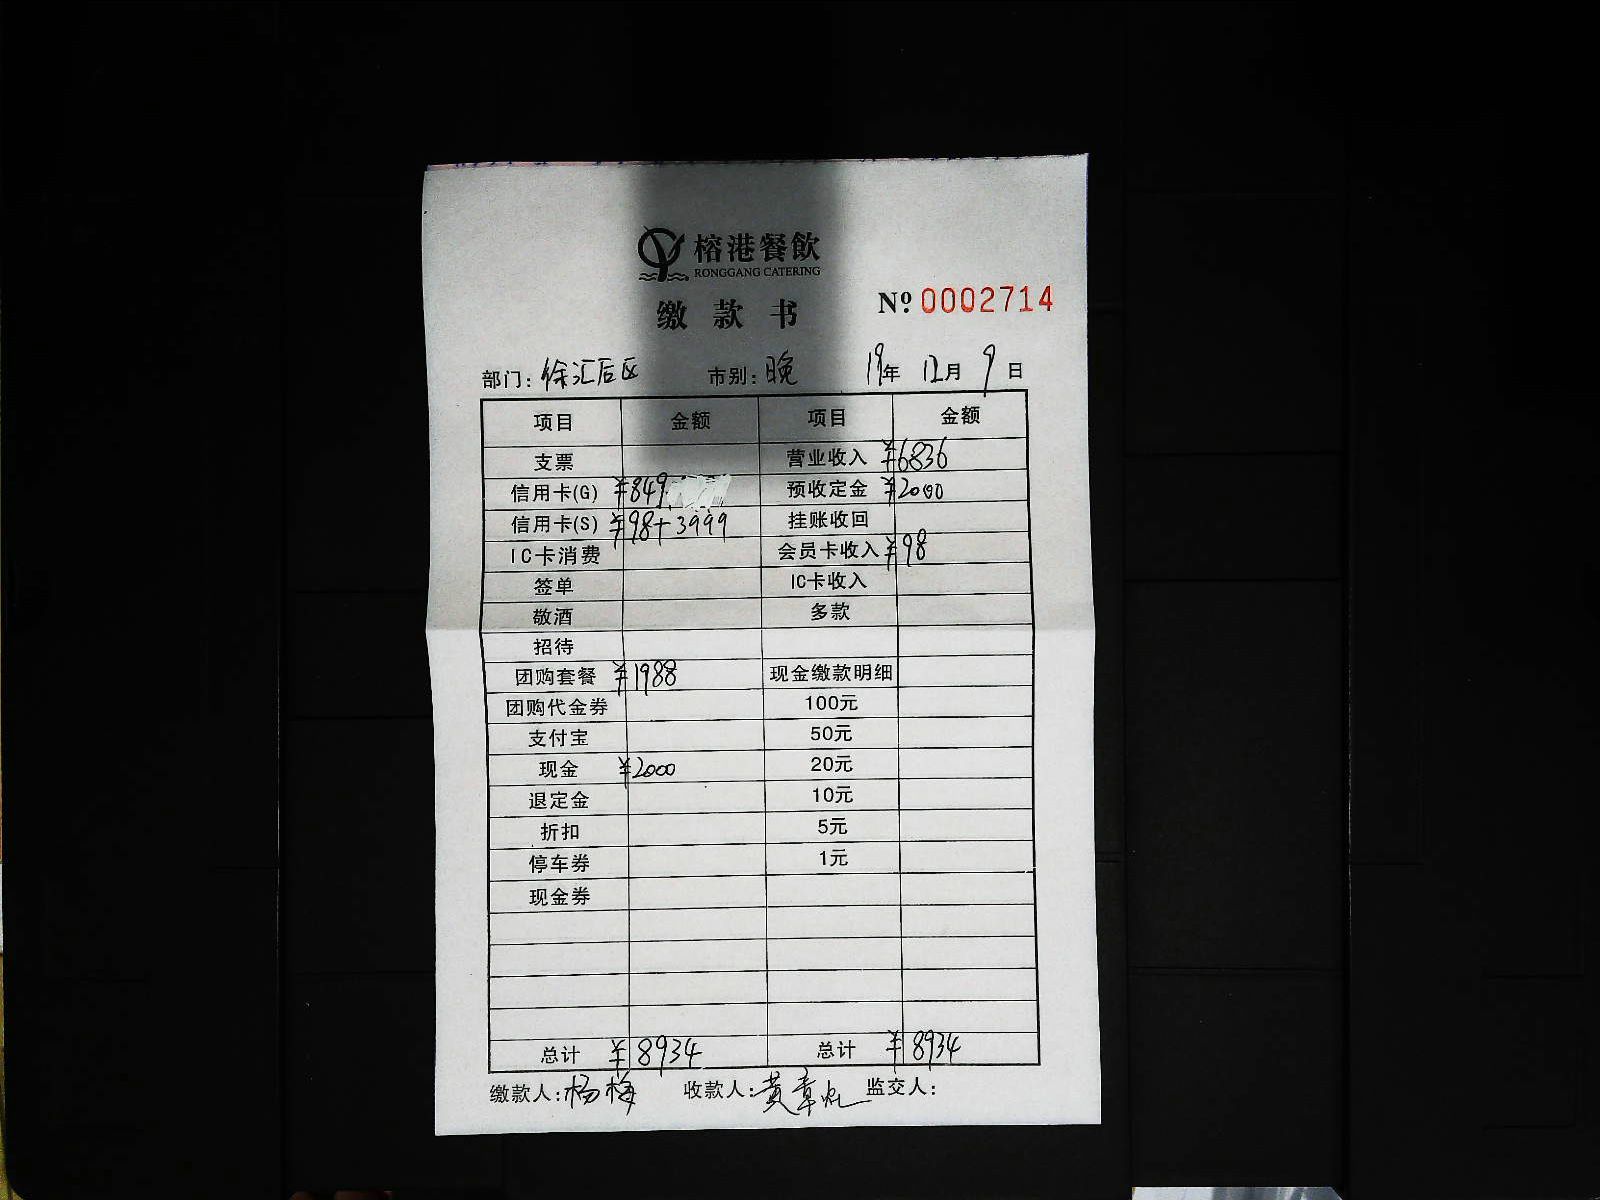 榕港餐飲
RONGGANG CATERING
缴款书
№ 0002714
部门: 徐汇后区 市别: 晚 19年 12月 9日
项目 金额 项目 金额
支票 营业收入 ¥6836
信用卡(G) ¥849 预收定金 ¥2000
信用卡(S) ¥98+3999 挂账收回
IC卡消费 会员卡收入 ¥98
签单 IC卡收入
敬酒 多款
招待
团购套餐 ¥1988 现金缴款明细
团购代金券 100元
支付宝 50元
现金 ¥2000 20元
退定金 10元
折扣 5元
停车券 1元
现金券
总计 ¥8934 总计 ¥8934
缴款人: 杨梅 收款人: 黄章 监交人: